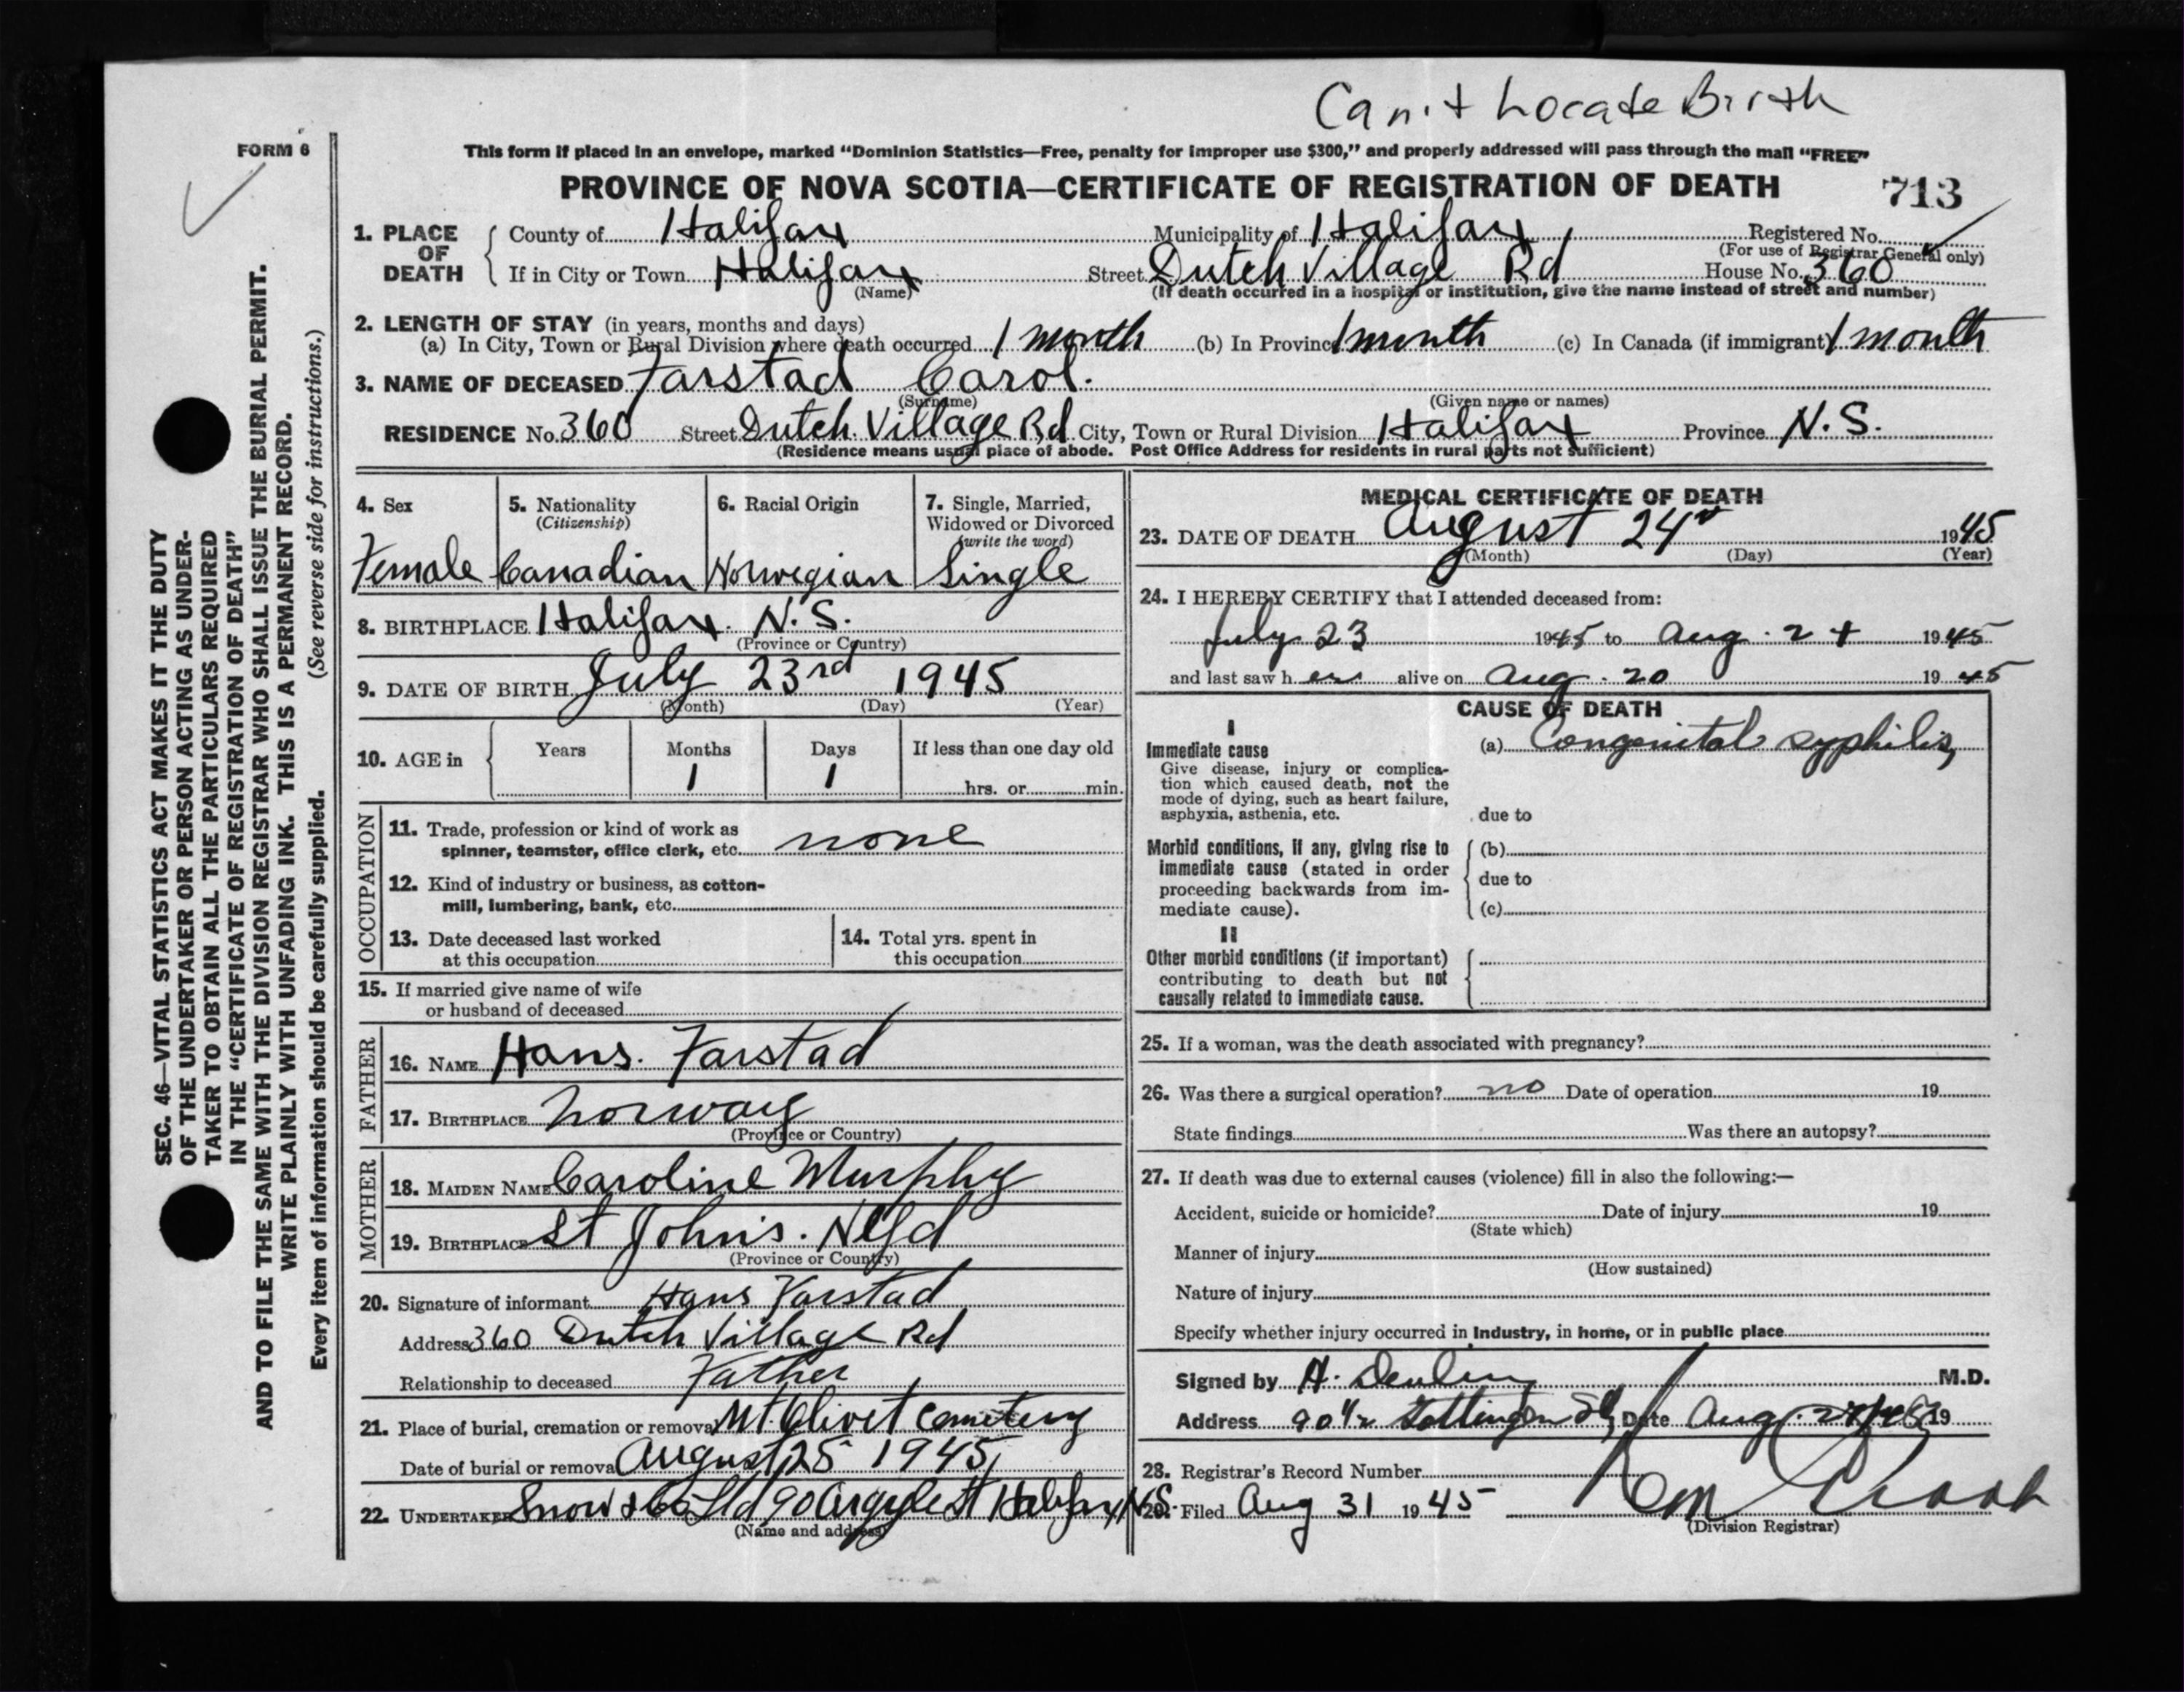 Can't Locate Birth
FORM 6
This form if placed in an envelope, marked "Dominion Statistics—Free, penalty for improper use $300," and properly addressed will pass through the mail "FREE"
PROVINCE OF NOVA SCOTIA—CERTIFICATE OF REGISTRATION OF DEATH 713
1. PLACE OF DEATH
County of Halifax Municipality of Halifax Registered No.
(For use of Registrar General only)
If in City or Town Halifax Street Dutch Village Rd House No. 360
(Name) (If death occurred in a hospital or institution, give the name instead of street and number)
2. LENGTH OF STAY (in years, months and days)
(a) In City, Town or Rural Division where death occurred 1 month (b) In Province 1 month (c) In Canada (if immigrant) 1 month
3. NAME OF DECEASED Farstad Carol.
(Surname) (Given name or names)
RESIDENCE No. 360 Street Dutch Village Rd City, Town or Rural Division Halifax Province N.S.
(Residence means usual place of abode. Post Office Address for residents in rural parts not sufficient)
SEC. 46—VITAL STATISTICS ACT MAKES IT THE DUTY
OF THE UNDERTAKER OR PERSON ACTING AS UNDER-
TAKER TO OBTAIN ALL THE PARTICULARS REQUIRED
IN THE "CERTIFICATE OF REGISTRATION OF DEATH"
AND TO FILE THE SAME WITH THE DIVISION REGISTRAR WHO SHALL ISSUE THE BURIAL PERMIT.
WRITE PLAINLY WITH UNFADING INK. THIS IS A PERMANENT RECORD.
Every item of information should be carefully supplied. (See reverse side for instructions.)
4. Sex
Female
5. Nationality
(Citizenship)
Canadian
6. Racial Origin
Norwegian
7. Single, Married,
Widowed or Divorced
(write the word)
Single
8. BIRTHPLACE Halifax. N.S.
(Province or Country)
9. DATE OF BIRTH July 23rd 1945
(Month) (Day) (Year)
10. AGE in Years Months Days If less than one day old
1 1 hrs. or min.
OCCUPATION
11. Trade, profession or kind of work as
spinner, teamster, office clerk, etc. none
12. Kind of industry or business, as cotton-
mill, lumbering, bank, etc.
13. Date deceased last worked
at this occupation
14. Total yrs. spent in
this occupation
15. If married give name of wife
or husband of deceased
FATHER
16. NAME Hans. Farstad
17. BIRTHPLACE Norway
(Province or Country)
MOTHER
18. MAIDEN NAME Caroline Murphy
19. BIRTHPLACE St John's. Nfld
(Province or Country)
20. Signature of informant Hans Farstad
Address 360 Dutch Village Rd
Relationship to deceased Father
21. Place of burial, cremation or removal Mt. Olivet Cemetery
Date of burial or removal August 25 1945
22. UNDERTAKER Snow & Co Ltd 90 Argyle St Halifax N.S.
(Name and address)
MEDICAL CERTIFICATE OF DEATH
23. DATE OF DEATH August 24 1945
(Month) (Day) (Year)
24. I HEREBY CERTIFY that I attended deceased from:
July 23 1945 to Aug. 24 1945
and last saw h er alive on Aug. 20 1945
CAUSE OF DEATH
I
Immediate cause
Give disease, injury or complica-
tion which caused death, not the
mode of dying, such as heart failure,
asphyxia, asthenia, etc.
(a) Congenital syphilis,
due to
Morbid conditions, if any, giving rise to
immediate cause (stated in order
proceeding backwards from im-
mediate cause).
(b)
due to
(c)
II
Other morbid conditions (if important)
contributing to death but not
causally related to immediate cause.
25. If a woman, was the death associated with pregnancy?
26. Was there a surgical operation? no Date of operation 19
State findings Was there an autopsy?
27. If death was due to external causes (violence) fill in also the following:—
Accident, suicide or homicide? Date of injury 19
(State which)
Manner of injury
(How sustained)
Nature of injury
Specify whether injury occurred in industry, in home, or in public place
Signed by H. M.D.
Address 90 1/2 Gottingen St, Date Aug. 19
28. Registrar's Record Number
29. Filed Aug 31 1945
(Division Registrar)